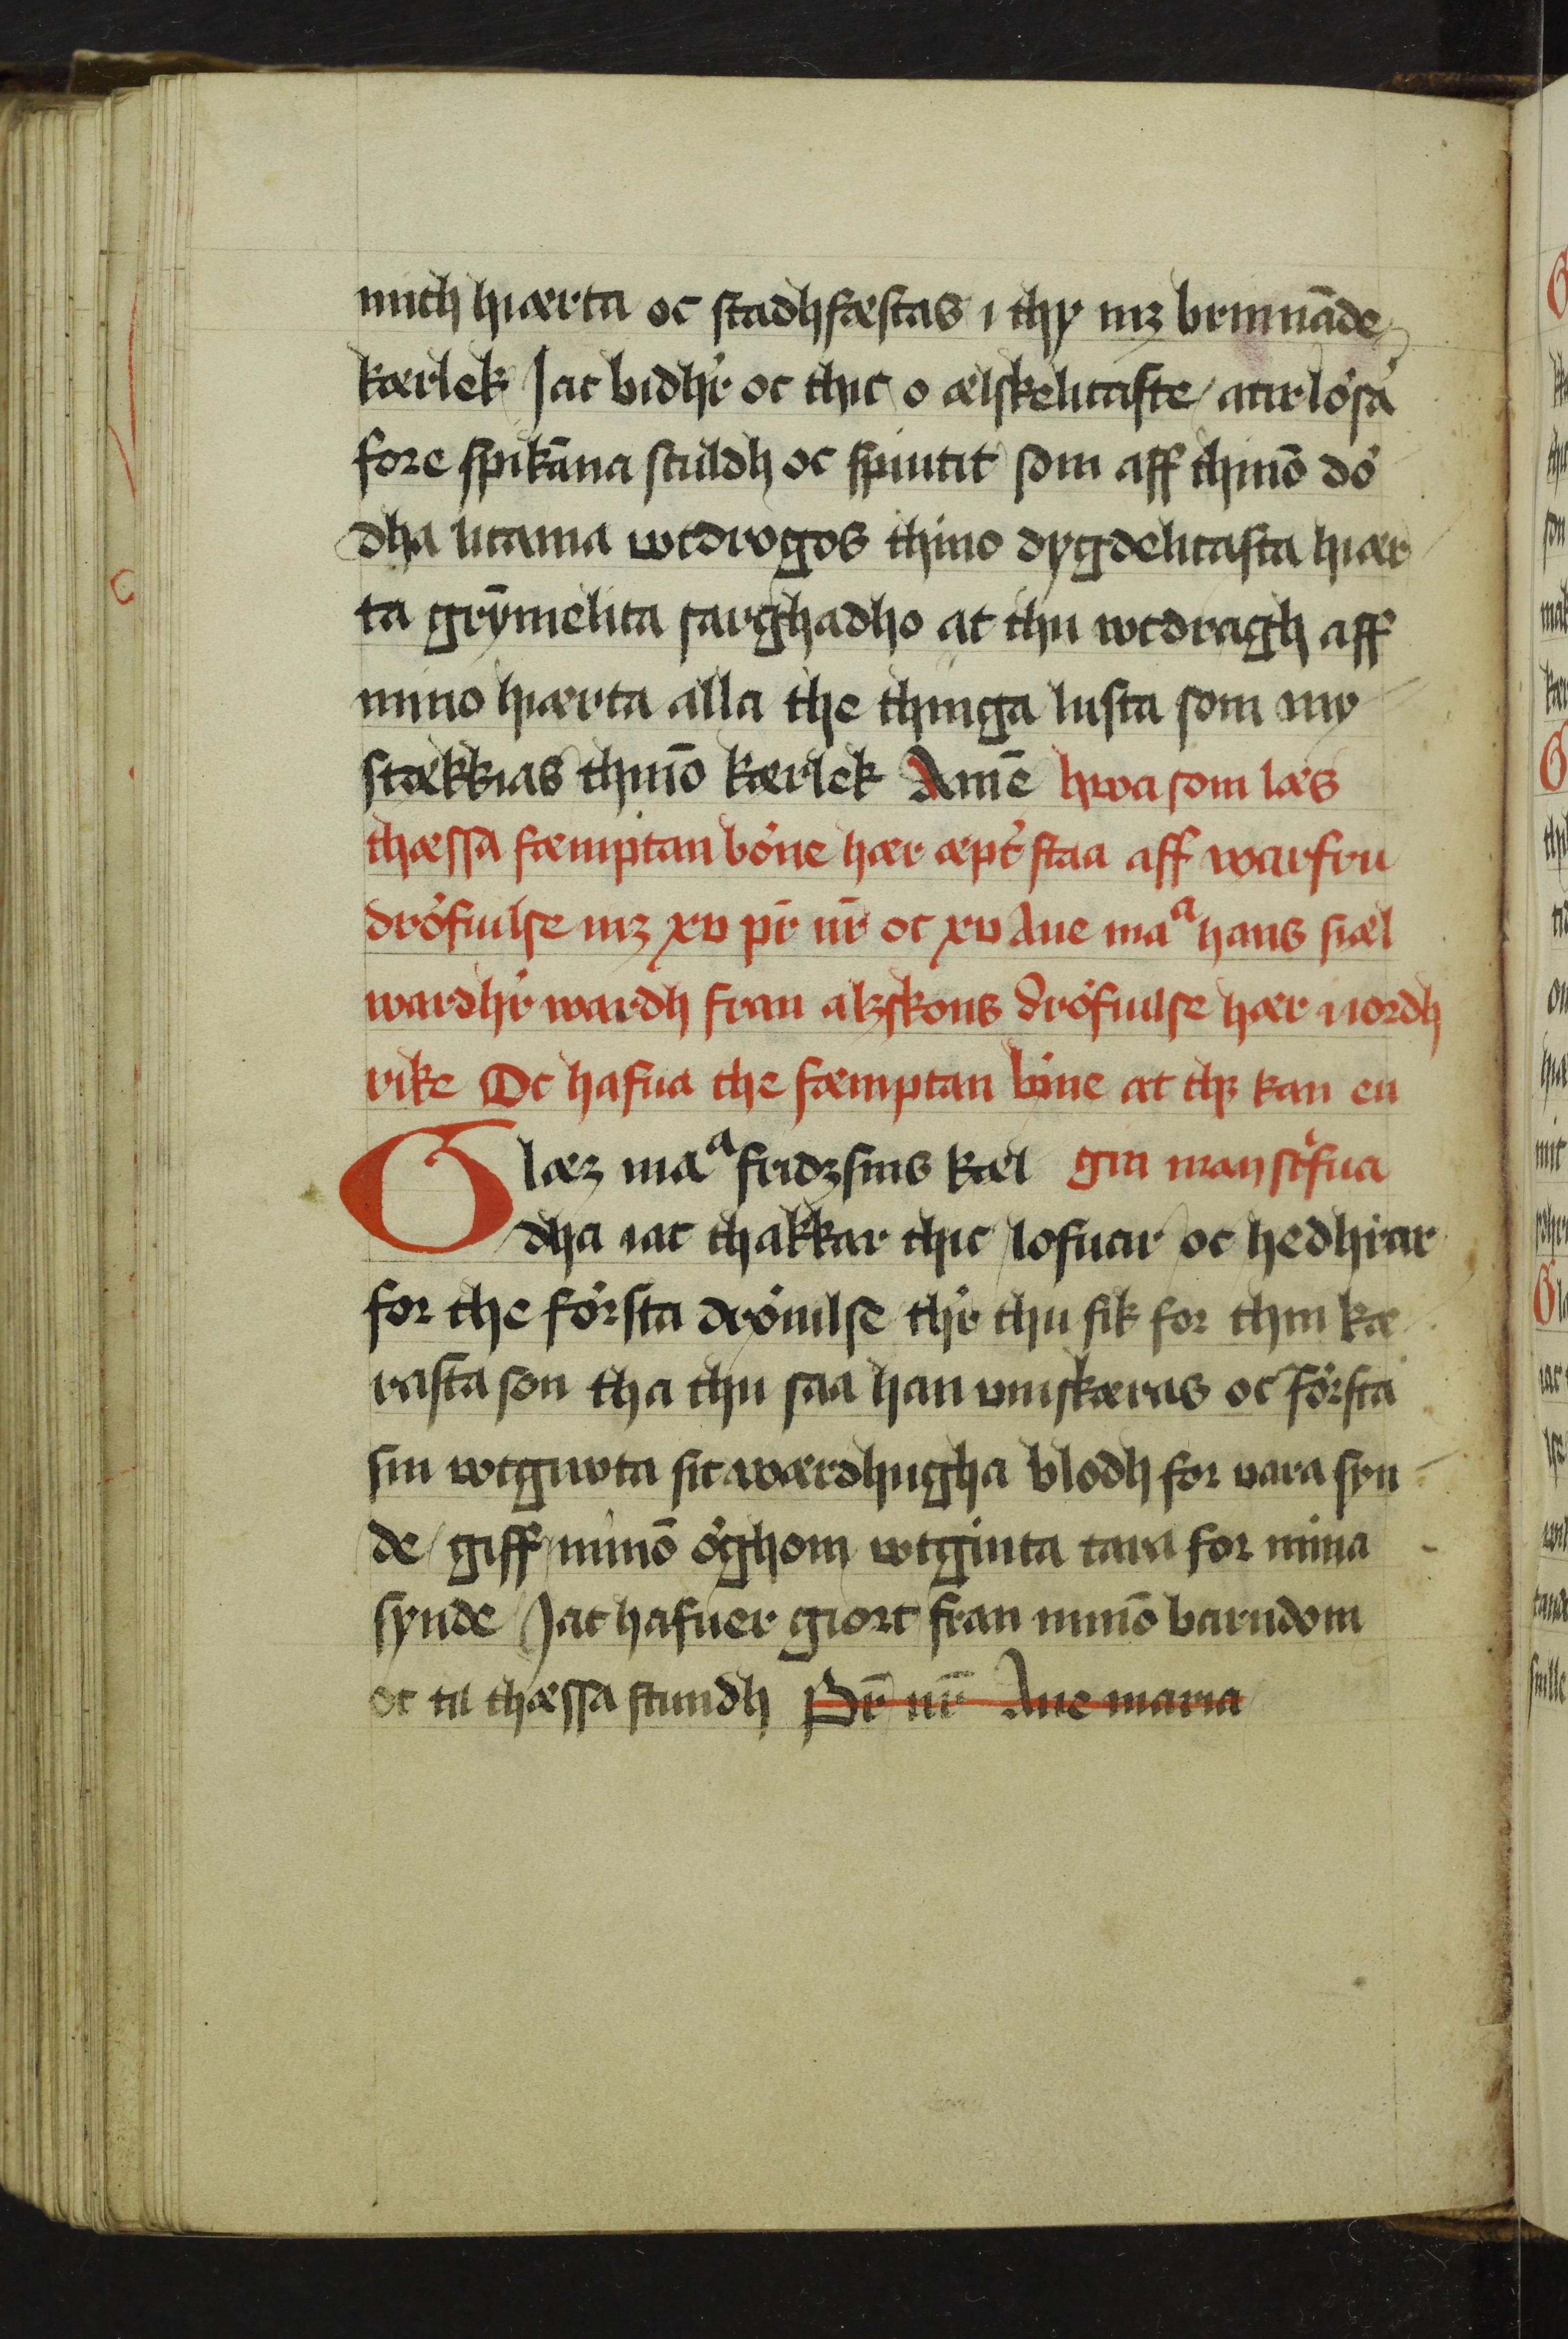 mith hiærta oc stadhfæstas i thy mz brinnāde
kærlek Jac bidhr oc thic o ælskelicaste / atirlösa
fore spikāna sculdh oc spiutit som aff thinō dö
dha licama wtdrogos thino dygdelicasta hiær
ta grȳmelica sarghadho at thu wtdragh aff
mino hiærta alla the thinga lusta som my
stækkias thinō kærlek Amē hwa som læs
thæssa fæmptan böne hær æpt staa aff warfru
dröfuilse mz xv pr̄ nr̄ oc xv Aue maᵃ hans siæl
wardhr wardh fran alzskons dröfuilse hær i iordh
rike Oc hafua the fæmptan böne æt thz kan en
Glæz maᵃ fridzsins kæl gin man scfua
dha iac thakkar thic lofuar oc hedhrar
for the förstа dröuilse thr thu fik for thin kæ
rasta son tha thu saa han vmskæras oc första
sin wtgiwta sit wærdhugha blodh for vara syn
de / giff minō öghom wtgiuta tara for mina
synde Jac hafuer giort fran minō barndom
oc til thæssa stundh Pr̄ nr̄ Aue maria